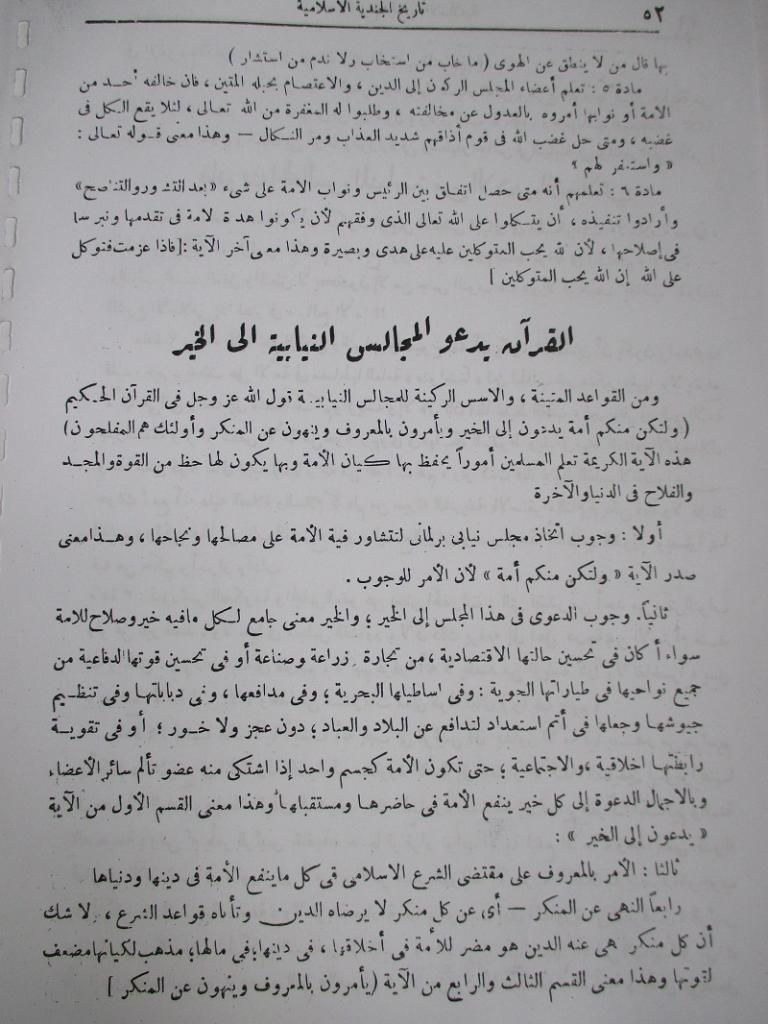 ٥٢
تاريخ الجندية الاسلامية
بها قال من لا ينطق عن الهوى ( ما خاب من استخاب ولا ندم من استشار )
مادة ٥ : تعلم أعضاء المجلس الركون إلى الدين ، والاعتصام بحبله المتين ، فان خالفه أحد من
الامة أو نوابها أمروه بالعدول عن مخالفته ، وطلبوا له المغفرة من الله تعالى ، لئلا يقع الكل فى
غضبه ، ومتى حل غضب الله فى قوم أذاقهم شديد العذاب ومر النكال — وهذا معنى قوله تعالى :
« واستغفر لهم »
مادة ٦ : تعلمهم أنه متى حصل اتفاق بين الرئيس ونواب الامة على شىء «بعد التشاور والتناصح»
وأرادوا تنفيذه ، أن يتكلوا على الله تعالى الذى وفقهم لأن يكونوا هدة لامة فى تقدمها ونبرسا
فى إصلاحها ، لأن لله يحب المتوكلين عليه على هدى وبصيرة وهذا معى آخر الآية : [فاذا عزمت فتوكل
على الله إن الله يحب المتوكلين ]
القرآن يدعو المجالس النيابية الى الخير
ومن القواعد المتينة ، والاسس الركينة للمجالس النيابيـة قول الله عز وجل فى القرآن الحكيم
( ولتكن منكم أمة يدعون إلى الخير ويأمرون بالمعروف وينهون عن المنكر وأولئك هم المفلحون)
هذه الآية الكريمة تعلم المسلمين أموراً يحفظ بها كيان الأمة وبها يكون لها حظ من القوة والمجد
والفلاح فى الدنيا والآخرة
أولا : وجوب اتخاذ مجلس نيابى برلمانى لتتشاور فية الأمة على مصالحها ونجاحها ، وهذا معنى
صدر الآية « ولتكن منكم أمة » لأن الأمر للوجوب .
ثانياً. وجوب الدعوى فى هذا المجلس إلى الخير ؛ والخير معنى جامع لكل مافيه خير وصلاح للامة
سواء أكان فى تحسين حالتها الاقتصادية ، من تجارة زراعة وصناعة أو فى تحسين قوتها الدفاعية من
جميع نواحيها فى طياراتها الجوية : وفى اساطيلها البحرية ؛ وفى مدافعها ، وفى دباباتها وفى تنظيم
جيوشها وجعلها فى أتم استعداد لتدافع عن البلاد والعباد ؛ دون عجز ولا خور ؛ أو فى تقويـة
رابطتها اخلاقية ، والاجتماعية ؛ حتى تكون الأمة كجسم واحد إذا اشتكى منه عضو تألم سائر الأعضاء
وبالاجمال الدعوة إلى كل خير ينفع الأمة فى حاضرها ومستقبلها وهذا معنى القسم الأول من الآية
« يدعون إلى الخير » :
ثالثا : الأمر بالمعروف على مقتضى الشرع الاسلامى فى كل ماينفع الأمة فى دينها ودنياها
رابعاً النهى عن المنكر — أى عن كل منكر لا يرضاه الدين وتأباه قواعد الشرع ، لا شك
أن كل منكر هى عنه الدين هو مضر للأمة فى أخلاقها ، فى دينها؛ فى مالها؛ مذهب لكيانها مضعف
لقوتها وهذا معنى القسم الثالث والرابع من الآية (يأمرون بالمعروف وينهون عن المنكر ]